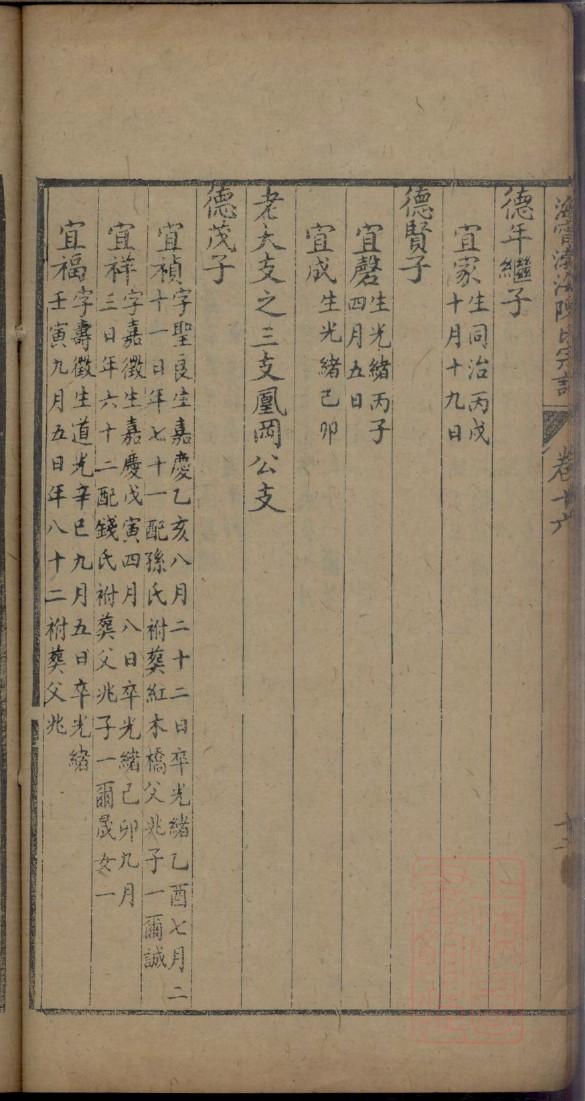 德年繼子
宜家生同治丙戌
十月十九日
德賢子
宜磬生光緒丙子
四月五日
宜成生光緒己卯
老大支之三支鳳岡公支
德茂子
宜禎字聖良生嘉慶乙亥八月二十二日卒光緒乙酉七月二
十一日年七十一配孫氏祔葬紅木橋父兆子一爾誠
宜祥字嘉徵生嘉慶戊寅四月八日卒光緒己卯九月
三日年六十二配錢氏祔葬父兆子一爾晟女一
宜福字壽徵生道光辛巳九月五日卒光緒
壬寅九月五日年八十二祔葬父兆
陳氏宗譜
卷十六